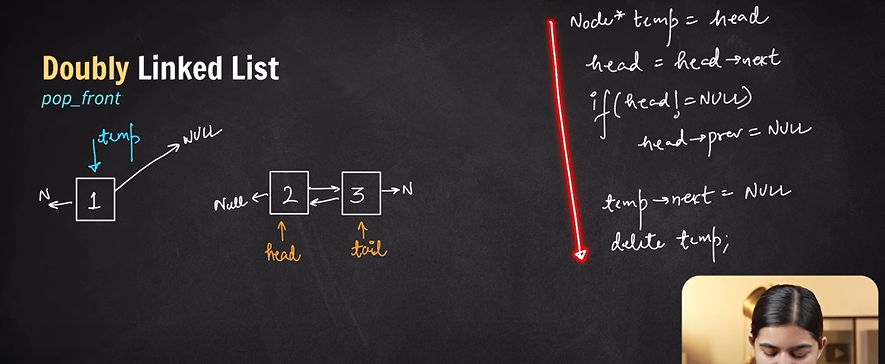 Doubly Linked List
pop_front
temp
NULL
N
1
Null
2
3
N
head
tail
Node* temp = head
head = head→next
if(head != NULL)
head→prev = NULL
temp→next = NULL
delete temp;